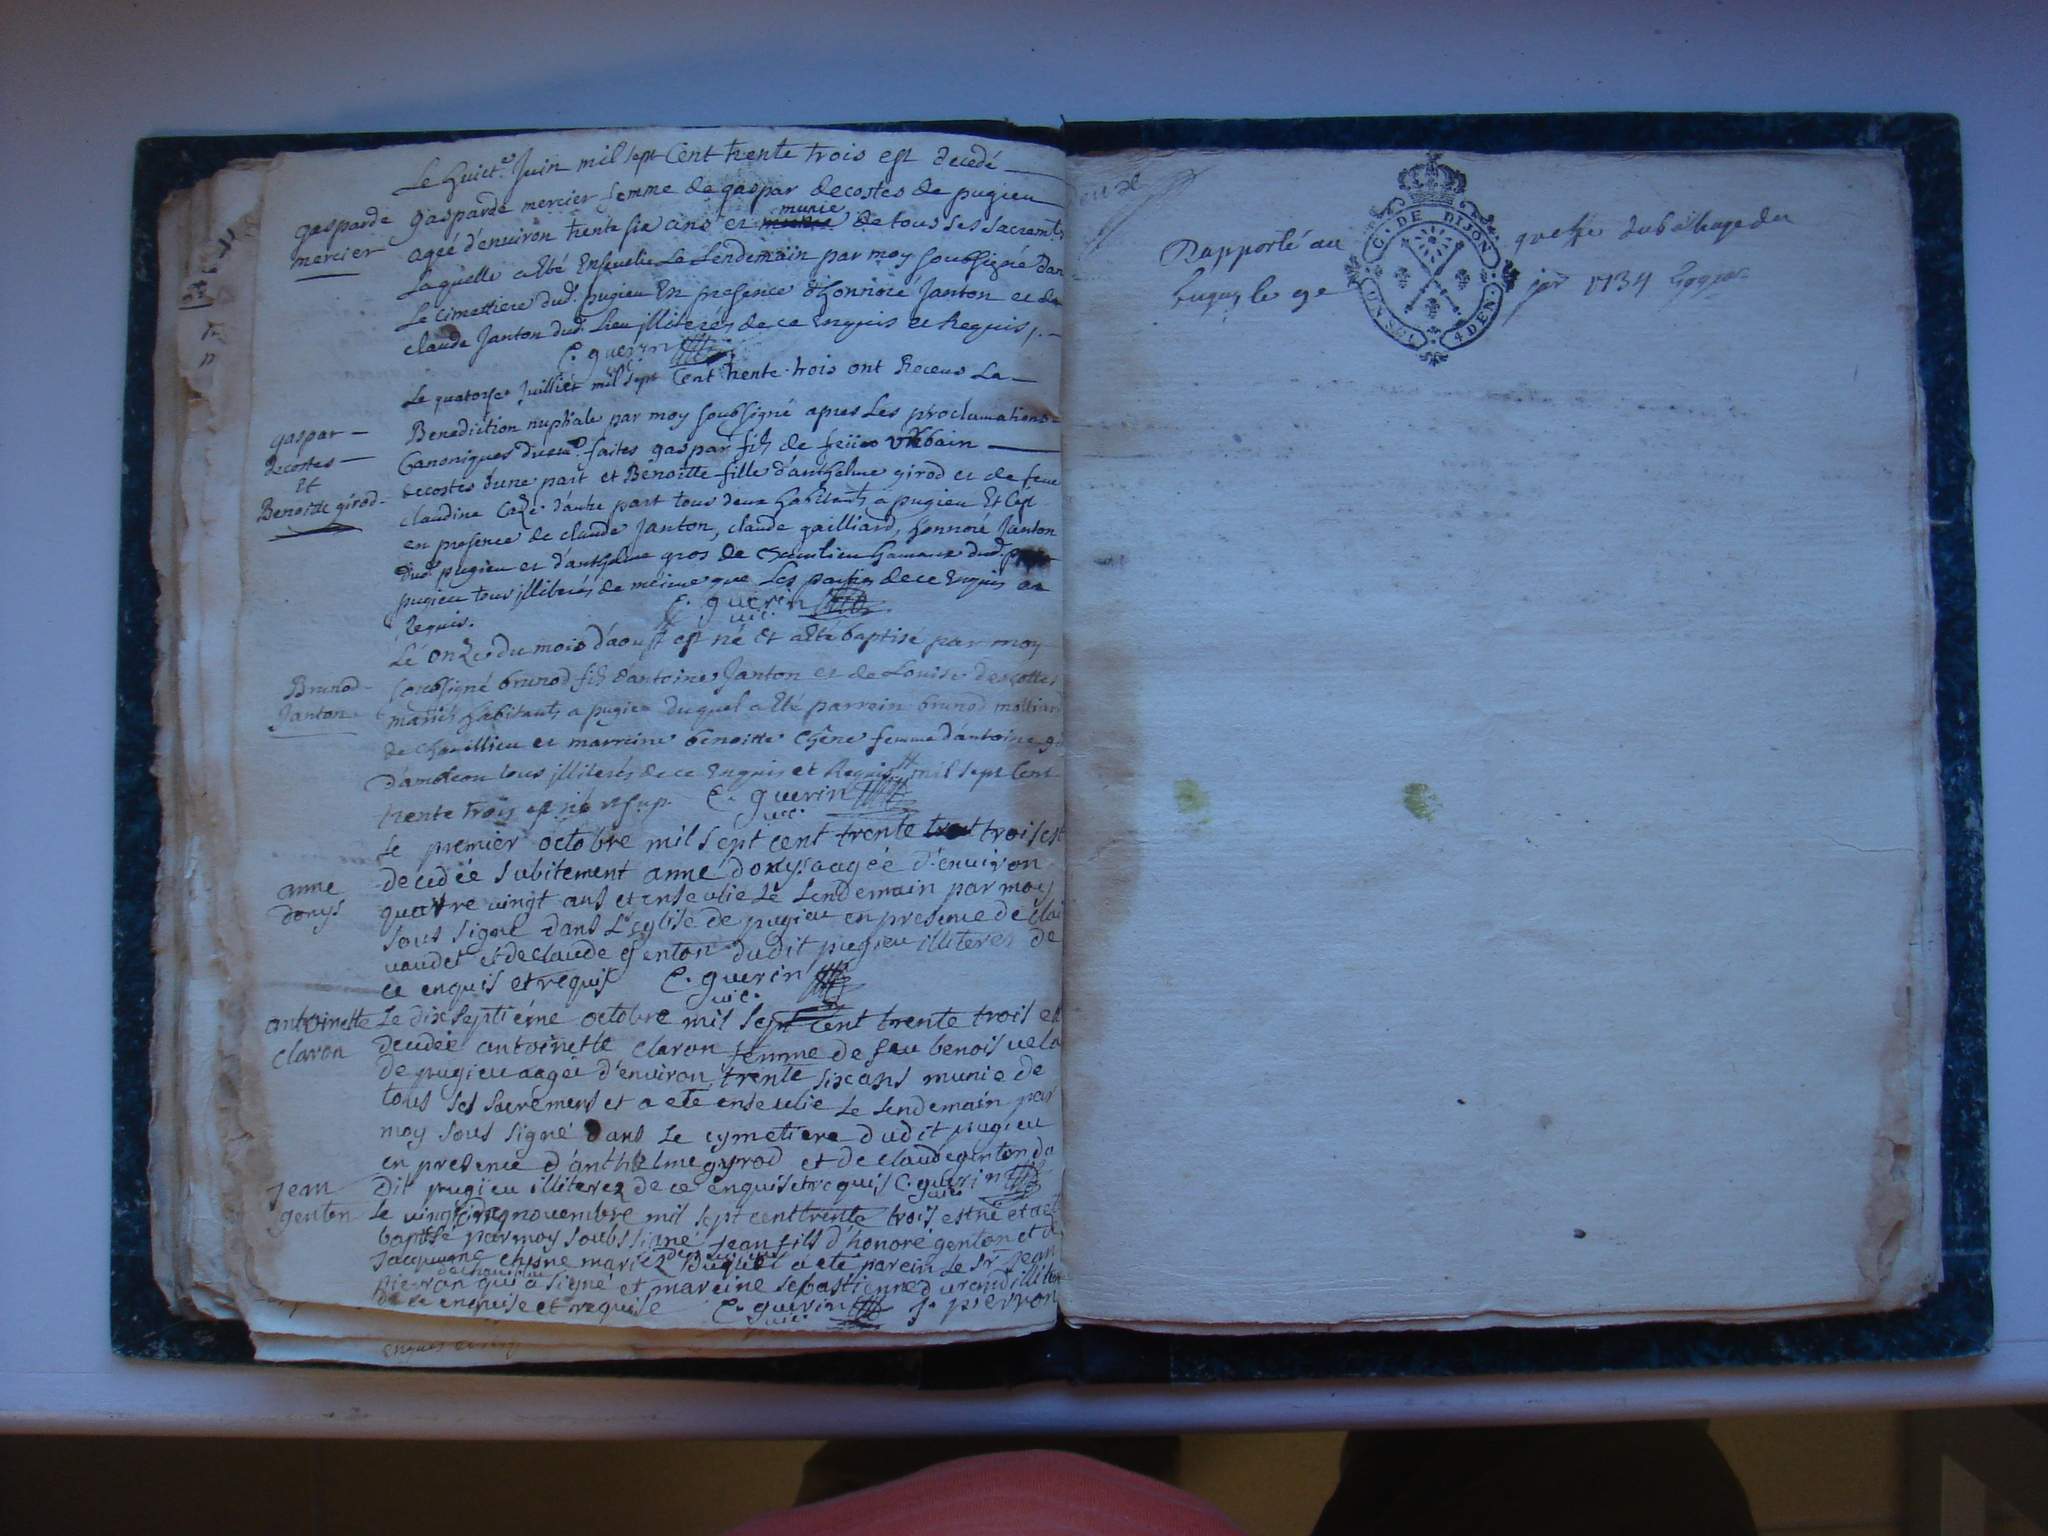 Le huict.e Juin mil sept Cent trente trois est decedé
gasparde mercier
gasparde mercier femme de gaspar decostes de pugieu
ageé d'environ trente six ans et munie de tous ses sacremts
Laquelle a Eté Ensevelie Le Lendemain par moy soubsigné dan
Le cimettiere dud. pugieu En presence d'honnoré Janton et de
claude Janton dud. Lieu illiterés de ce Enquis et Requis
C. guerin
Le quatorse Juillier mil sept Cent trente trois ont Receus La
gaspar decostes et Benoitte girod
Benediction nuptiale par moy soubsigné apres Les proclamations
Canoniques faites gaspar fils de feu Urbain
decostes d'une part et Benoitte fille d'anthelme girod et de feue
claudine d'autre part tous deux habitants a pugieu Et Ce
en presence de claude Janton, claude gailliard, honnoré Janton
dud. pugieu et d'anthelme gros de hameau dud.
pugieu tous illiterés de méme que Les parties de ce Enquis et
Requis. C. guerin vic.
Lé onze du mois d'aoust est né Et a Eté baptisé par moy
Brunod Janton
soubsigné brunod fils d'antoine Janton et de Louise descottes
mariés habitants a pugieu duquel a Eté parrein brunod
de et marreine benoitte Chêne femme d'antoine
tous illiterés de ce Enquis et Requis mil sept Cent
trente trois C. guerin vic.
Le premier octobre mil sept cent trente trois est
anne donys
decedée subitement anne donys aagée d'environ
quattre vingt ans et ensevlie Le Lendemain par moy
sous signé dans L'eglise de pugieu en presence de
vaudet et de claude genton dudit pugieu illiteres de
ce enquis et requis C. guerin vic.
antoinette claron
Le dix septiéme octobre mil sept cent trente trois e
decedée antoinette claron femme de feu benois
de pugieu aagée d'environ trente six ans munie de
tous ses sacrémens et a eté ensevelie Le lendemain par
moy sous signé dans Le cymetiere dudit pugieu
en presence d'anthelme gyrod et de claude genton du
dit pugieu illiterez de ce enquis et requis C. guerin vic.
jean genton
Le vingt cinq novembre mil sept cent trente trois est né et a et
baptisé par moy soubs signé jean fils d'honoré genton et d
Jacquemne chesne mariez Duquel a eté parein Le sr. Jean
pierron qui a signé et mareine sebastienne durand
de ce enquise et requise C. guerin vic. J. pierron
Rapporté au greffe du bailliage de
bugey le 9e 1734
G. DE DIJON
UN SEL 4 DEN